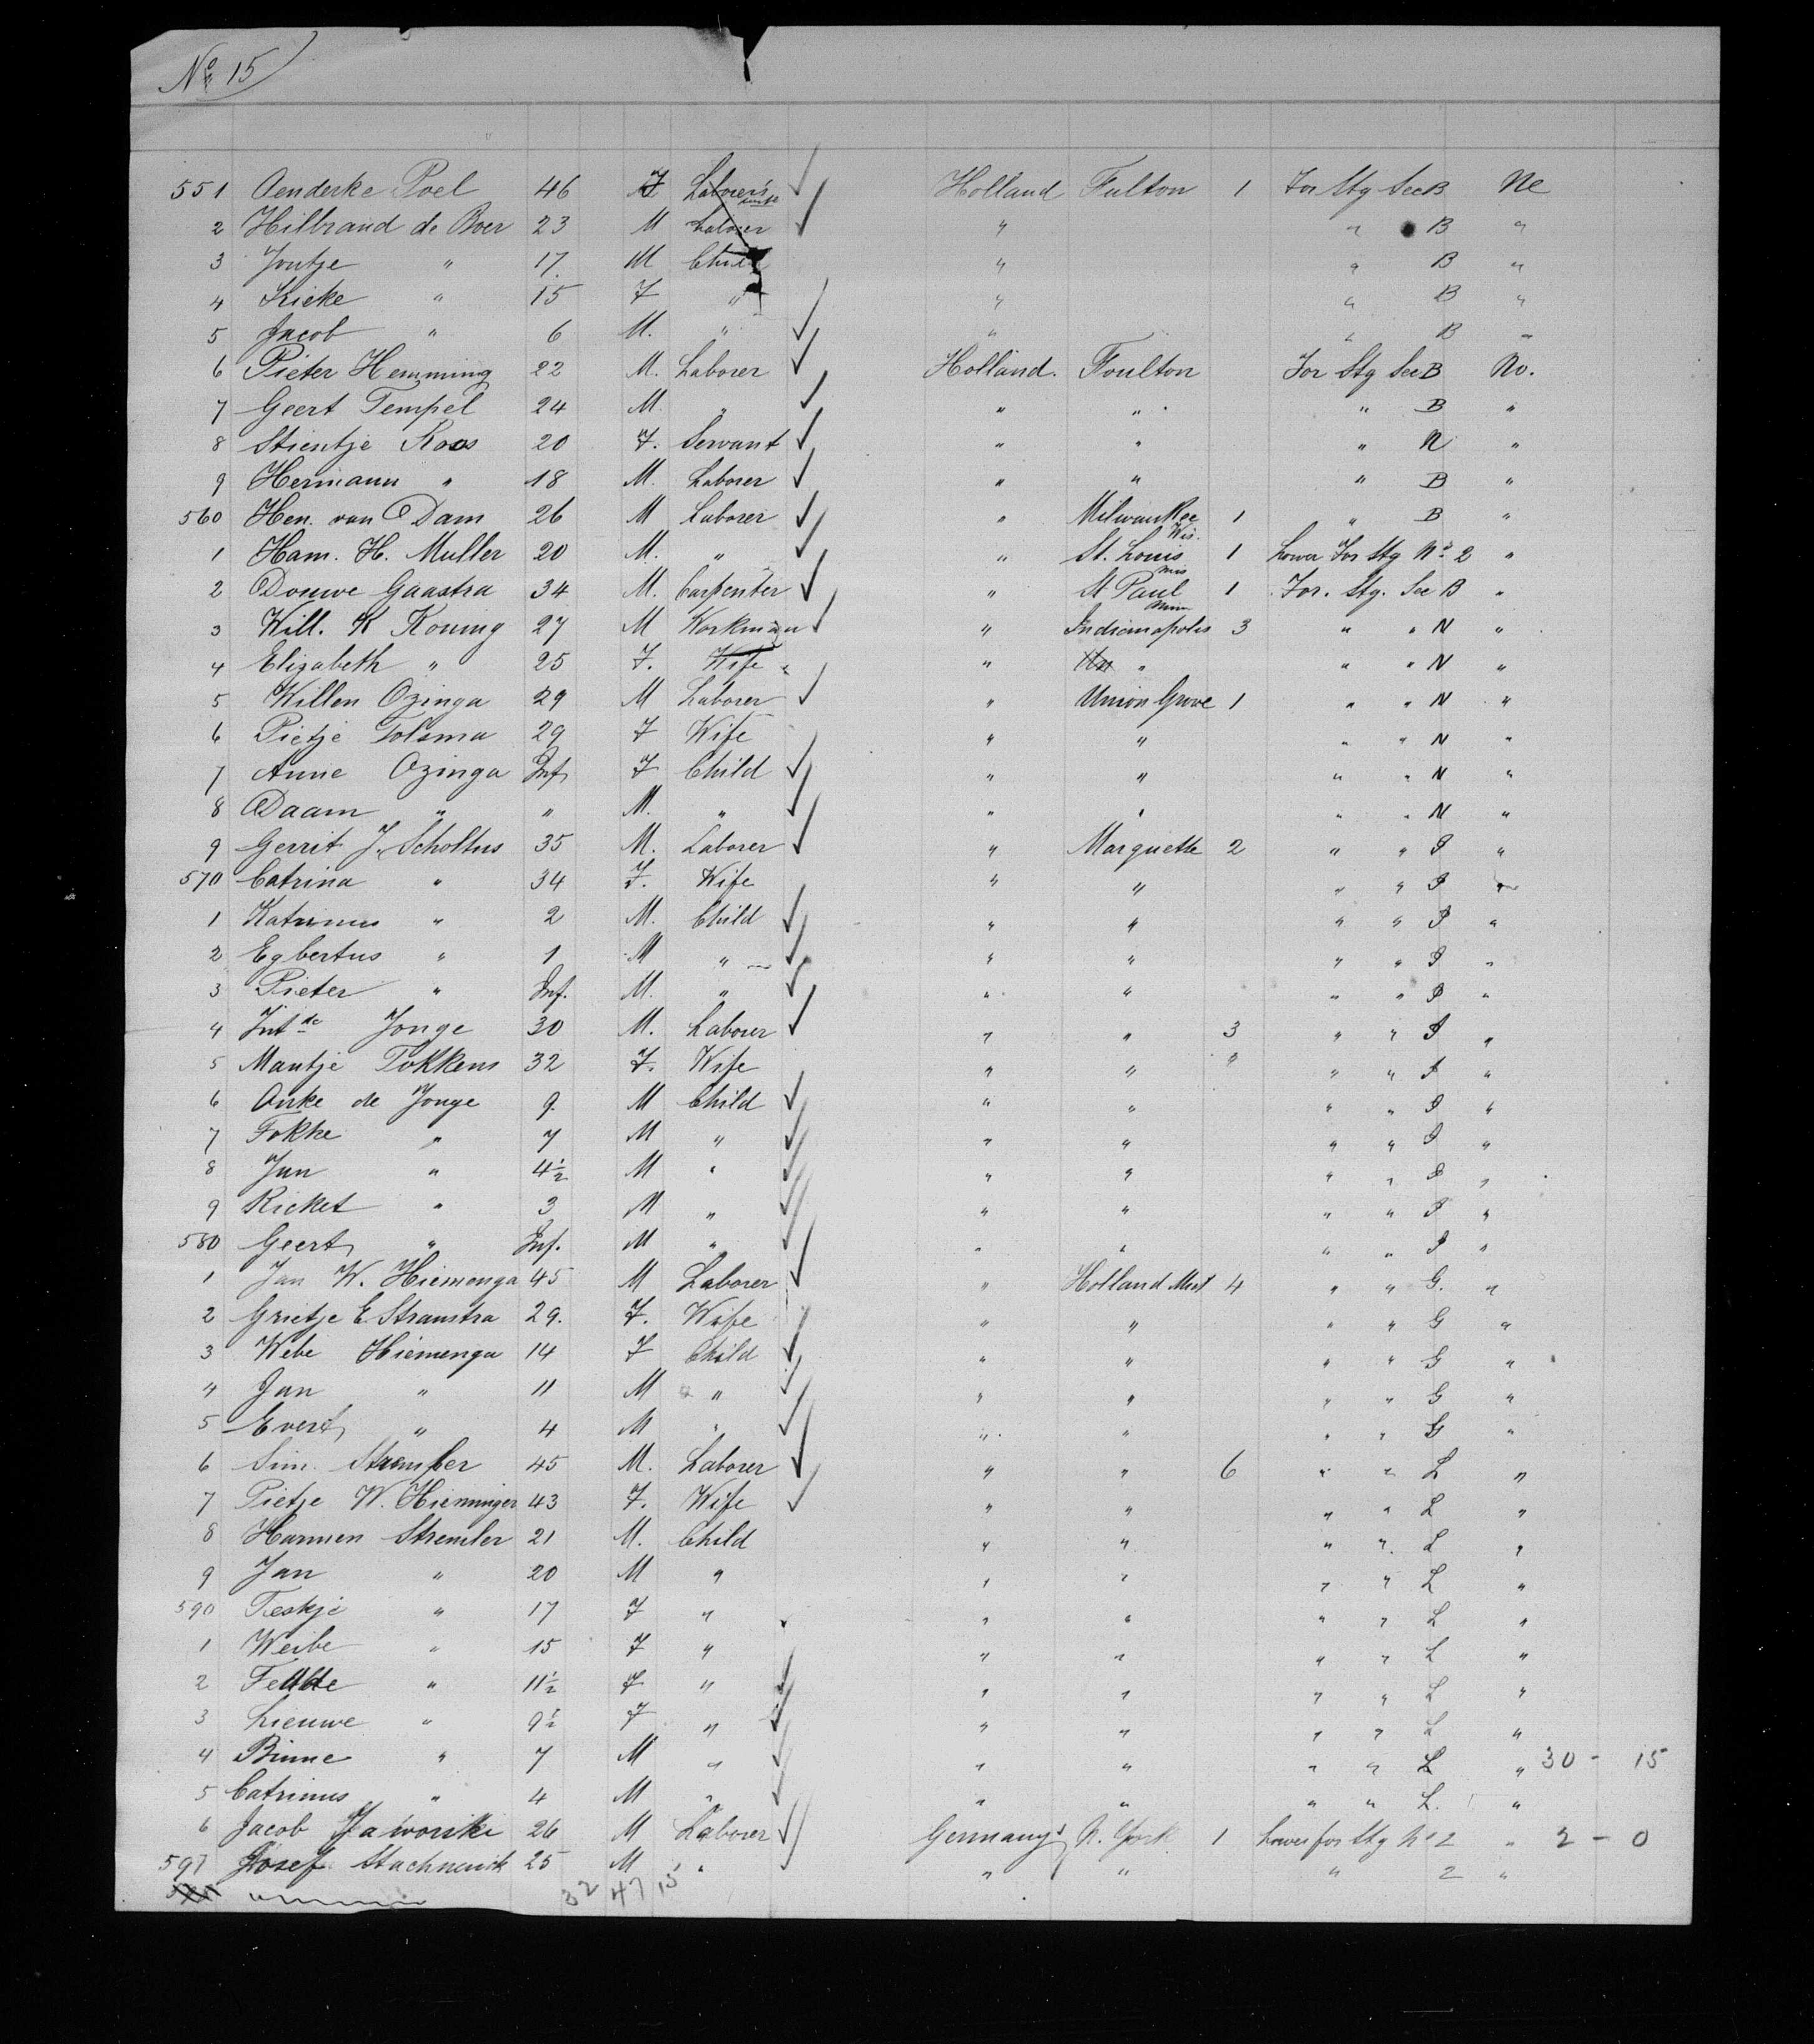 No 15
551 Aenderke Poel 46 F Laborer's wife Holland Fulton 1 For Stg Sec B No
2 Hilbrand de Boer 23 M Laborer " " B "
3 Jontje " 17 M Child " " B "
4 Kieke " 15 F " " " B "
5 Jacob " 6 M. " " " B "
6 Pieter Hemming 22 M. Laborer Holland. Foulton For Stg Sec B No.
7 Geert Tempel 24 M " " " " B "
8 Stientje Roos 20 F. Servant " " " N "
9 Hermann " 18 M. Laborer " " " B "
560 Hen. van Dam 26 M Laborer " Milwaukee Wis. 1 " B "
1 Ham. H. Muller 20 M. " " St. Louis Mis 1 Lower For Stg No 2 "
2 Douwe Gaastra 34 M. Carpenter " St Paul Minn 1 For. Stg. Sec B "
3 Will. K Koning 27 M Workman " Indianapolis 3 " " N "
4 Elizabeth " 25 F. Wife " " " " N "
5 Willem Ozinga 29 M Laborer " Union Grove 1 " " N "
6 Pietje Tolsma 29 F Wife " " " " N "
7 Anne Ozinga Inf F Child " " " " N "
8 Daam " " M. " " " " " N "
9 Gerrit J. Scholtus 35 M. Laborer " Marquette 2 " " I "
570 Catrina " 34 F. Wife " " " " I "
1 Katrinus " 2 M. Child " " " " I "
2 Egbertus " 1 M " " " " " I "
3 Pieter " Inf. M. " " " " " I "
4 Jnt de Jonge 30 M. Laborer " " 3 " " I "
5 Mantje Tokkens 32 F. Wife " " " " " I "
6 Anke de Jonge 9. M Child " " " " I "
7 Fokke " 7 M " " " " " I "
8 Jan " 4½ M " " " " " I "
9 Ricket " 3 M " " " " " I "
580 Geert " Inf. M " " " " " I "
1 Jan W. Hiemenga 45 M Laborer " Holland Mich 4 " " G. "
2 Grietje E Stramstra 29. F. Wife " " " " G "
3 Webe Hiemenga 14 F Child " " " " G "
4 Jan " 11 M " " " " " G "
5 Evert " 4 M " " " " " G "
6 Sim. Stremler 45 M. Laborer " " 6 " " L "
7 Pietje W. Hieminger 43 F. Wife " " " " L "
8 Harmen Stremler 21 M. Child " " " " L "
9 Jan " 20 M " " " " " L "
590 Teskje " 17 F " " " " " L "
1 Weibe " 15 F " " " " " L "
2 " 11½ F " " " " " L "
3 Lieuwe " 9½ F " " " " " L "
4 Binne " 7 M " " " " " L " 30 - 15
5 Catrinus " 4 M " " " " " L. "
6 Jacob Jaworski 26 M Laborer Germany N. York 1 Lower for Stg No 2 " 2 - 0
597 Josef Stachnowik 25 M " " " " 2 "
32 47 15